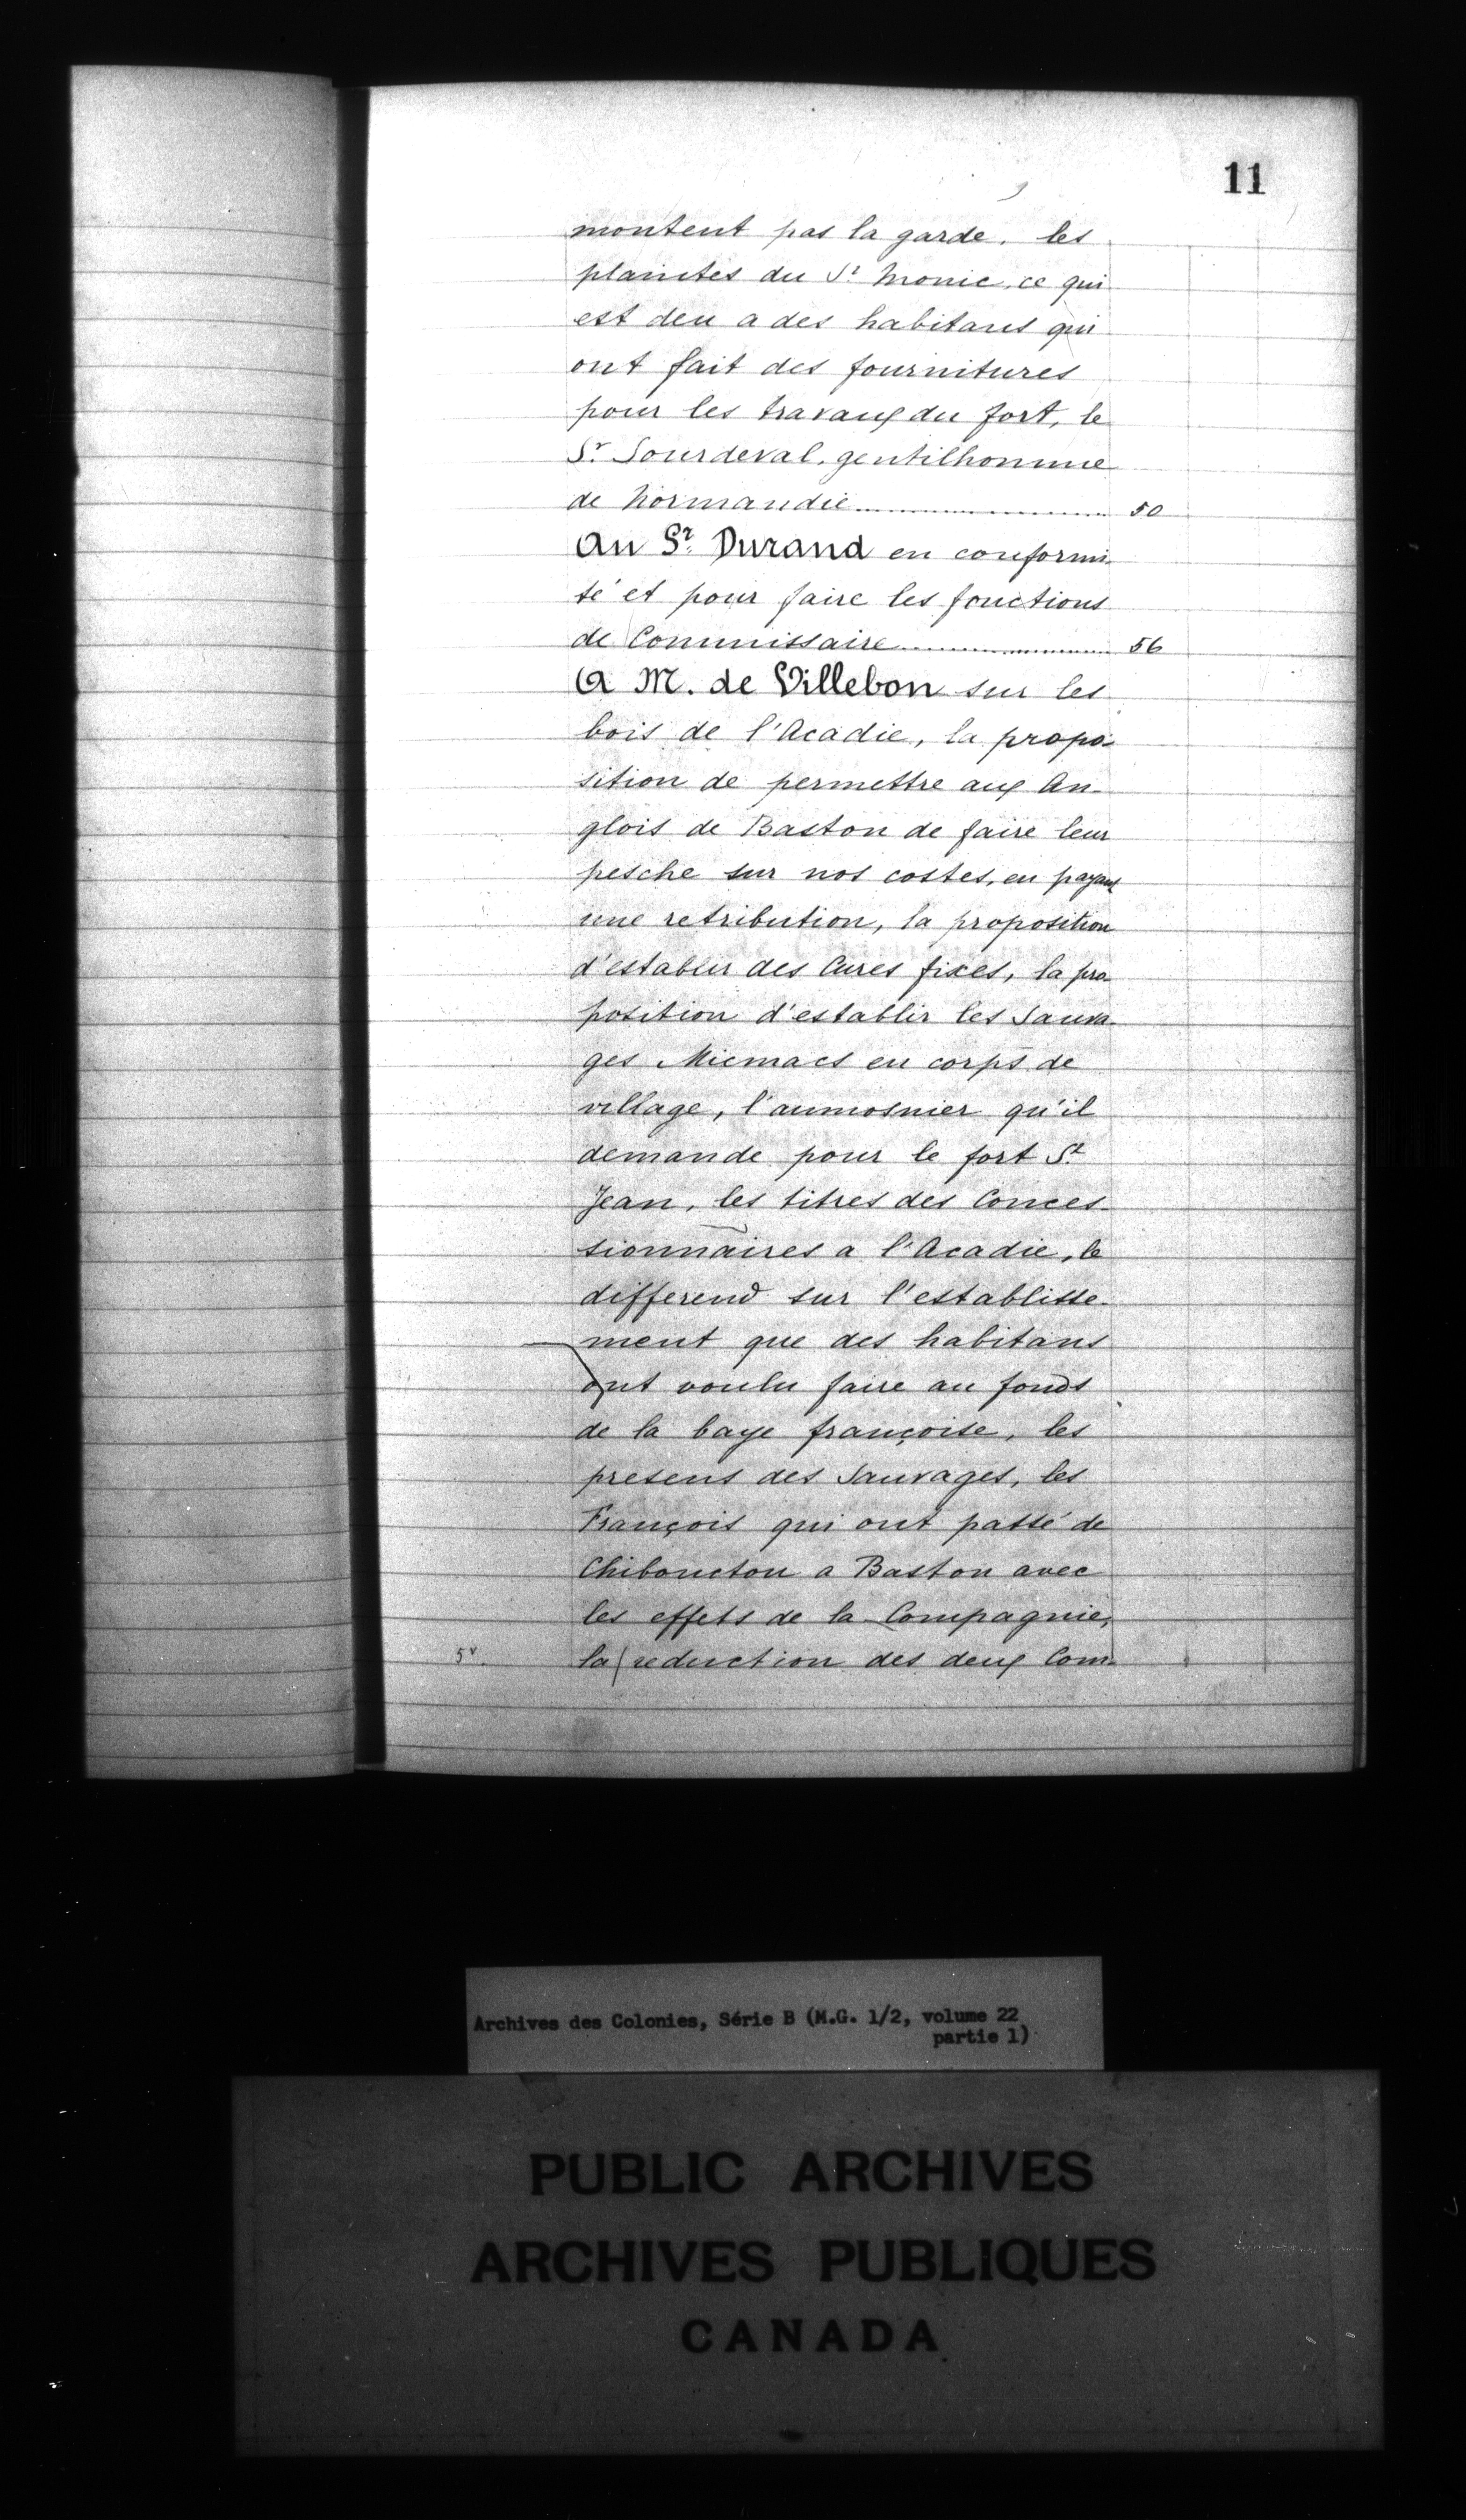 11
montent pas la garde, les
plaintes du Sr Monic, ce qui
est deu a des habitans qui
ont fait des fournitures
pour les travaux du fort, le
Sr Sourdeval, gentilhomme
de Normandie.................... 50
Au Sr Durand en conformi-
té et pour faire les fonctions
de Commissaire.................... 56
A M. de Villebon sur les
bois de l'Acadie, la propo-
sition de permettre aux An-
glois de Baston de faire leur
pesche sur nos costes, en payant
une retribution, la proposition
d'establir des Cures fixes, la pro-
position d'establir les Sauva-
ges Micmacs en corps de
village, l'aumosnier qu'il
demande pour le fort St
Jean, les titres des Conces-
sionnaires a l'Acadie, le
differend sur l'establisse-
ment que des habitans
ont voulu faire au fonds
de la baye françoise, les
presens des Sauvages, les
François qui ont passé de
Chiboucton a Baston avec
les effets de la Compagnie,
5v. la reduction des deux Com-
Archives des Colonies, Série B (M.G. 1/2, volume 22
partie 1)
PUBLIC ARCHIVES
ARCHIVES PUBLIQUES
CANADA